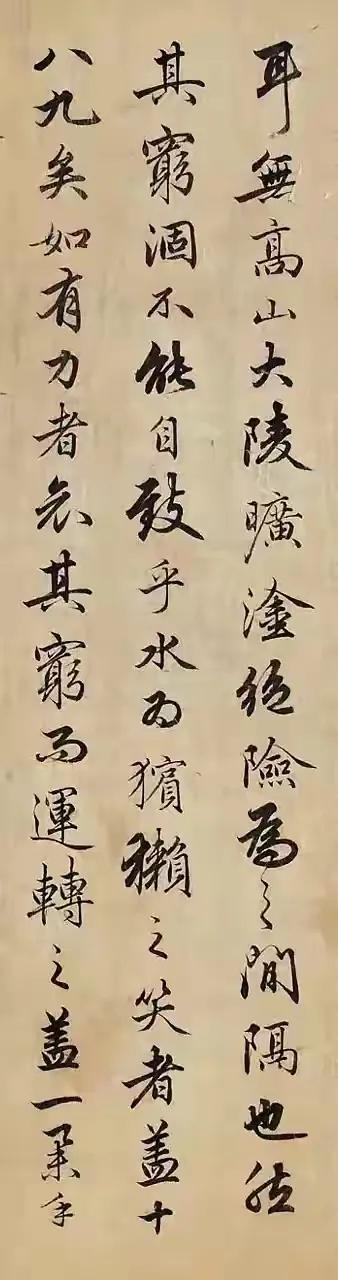 耳無高山大陵曠塗絕險為之間隔也然
其窮涸不能自致乎水為獱獺之笑者蓋十
八九矣如有力者哀其窮而運轉之蓋一舉手